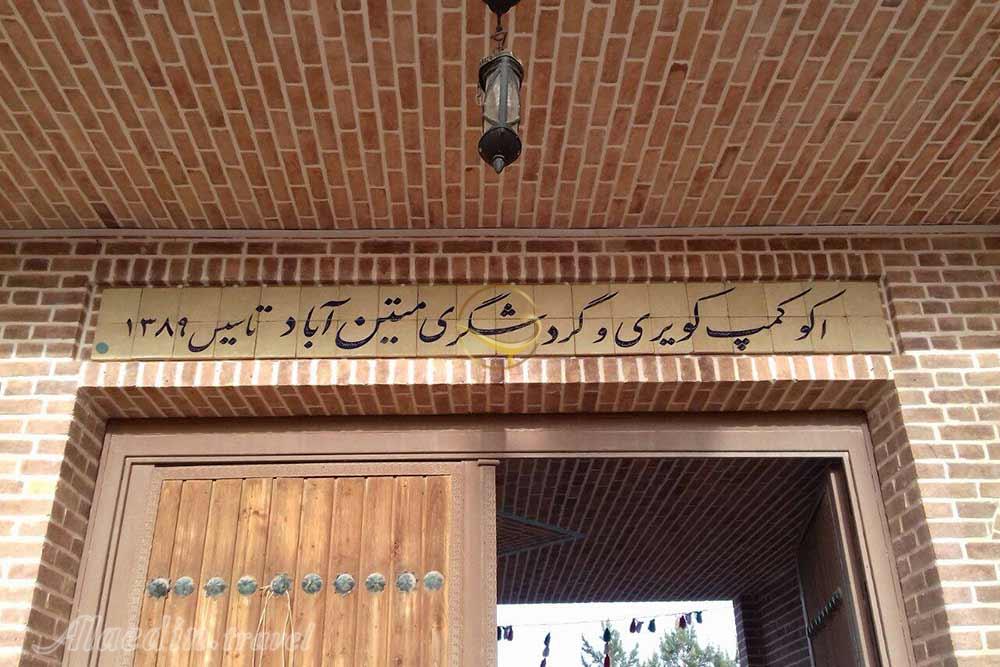 اکو کمپ کویری و گردشگری متین آباد تاسیس ۱۳۸۹
Alaedin.travel